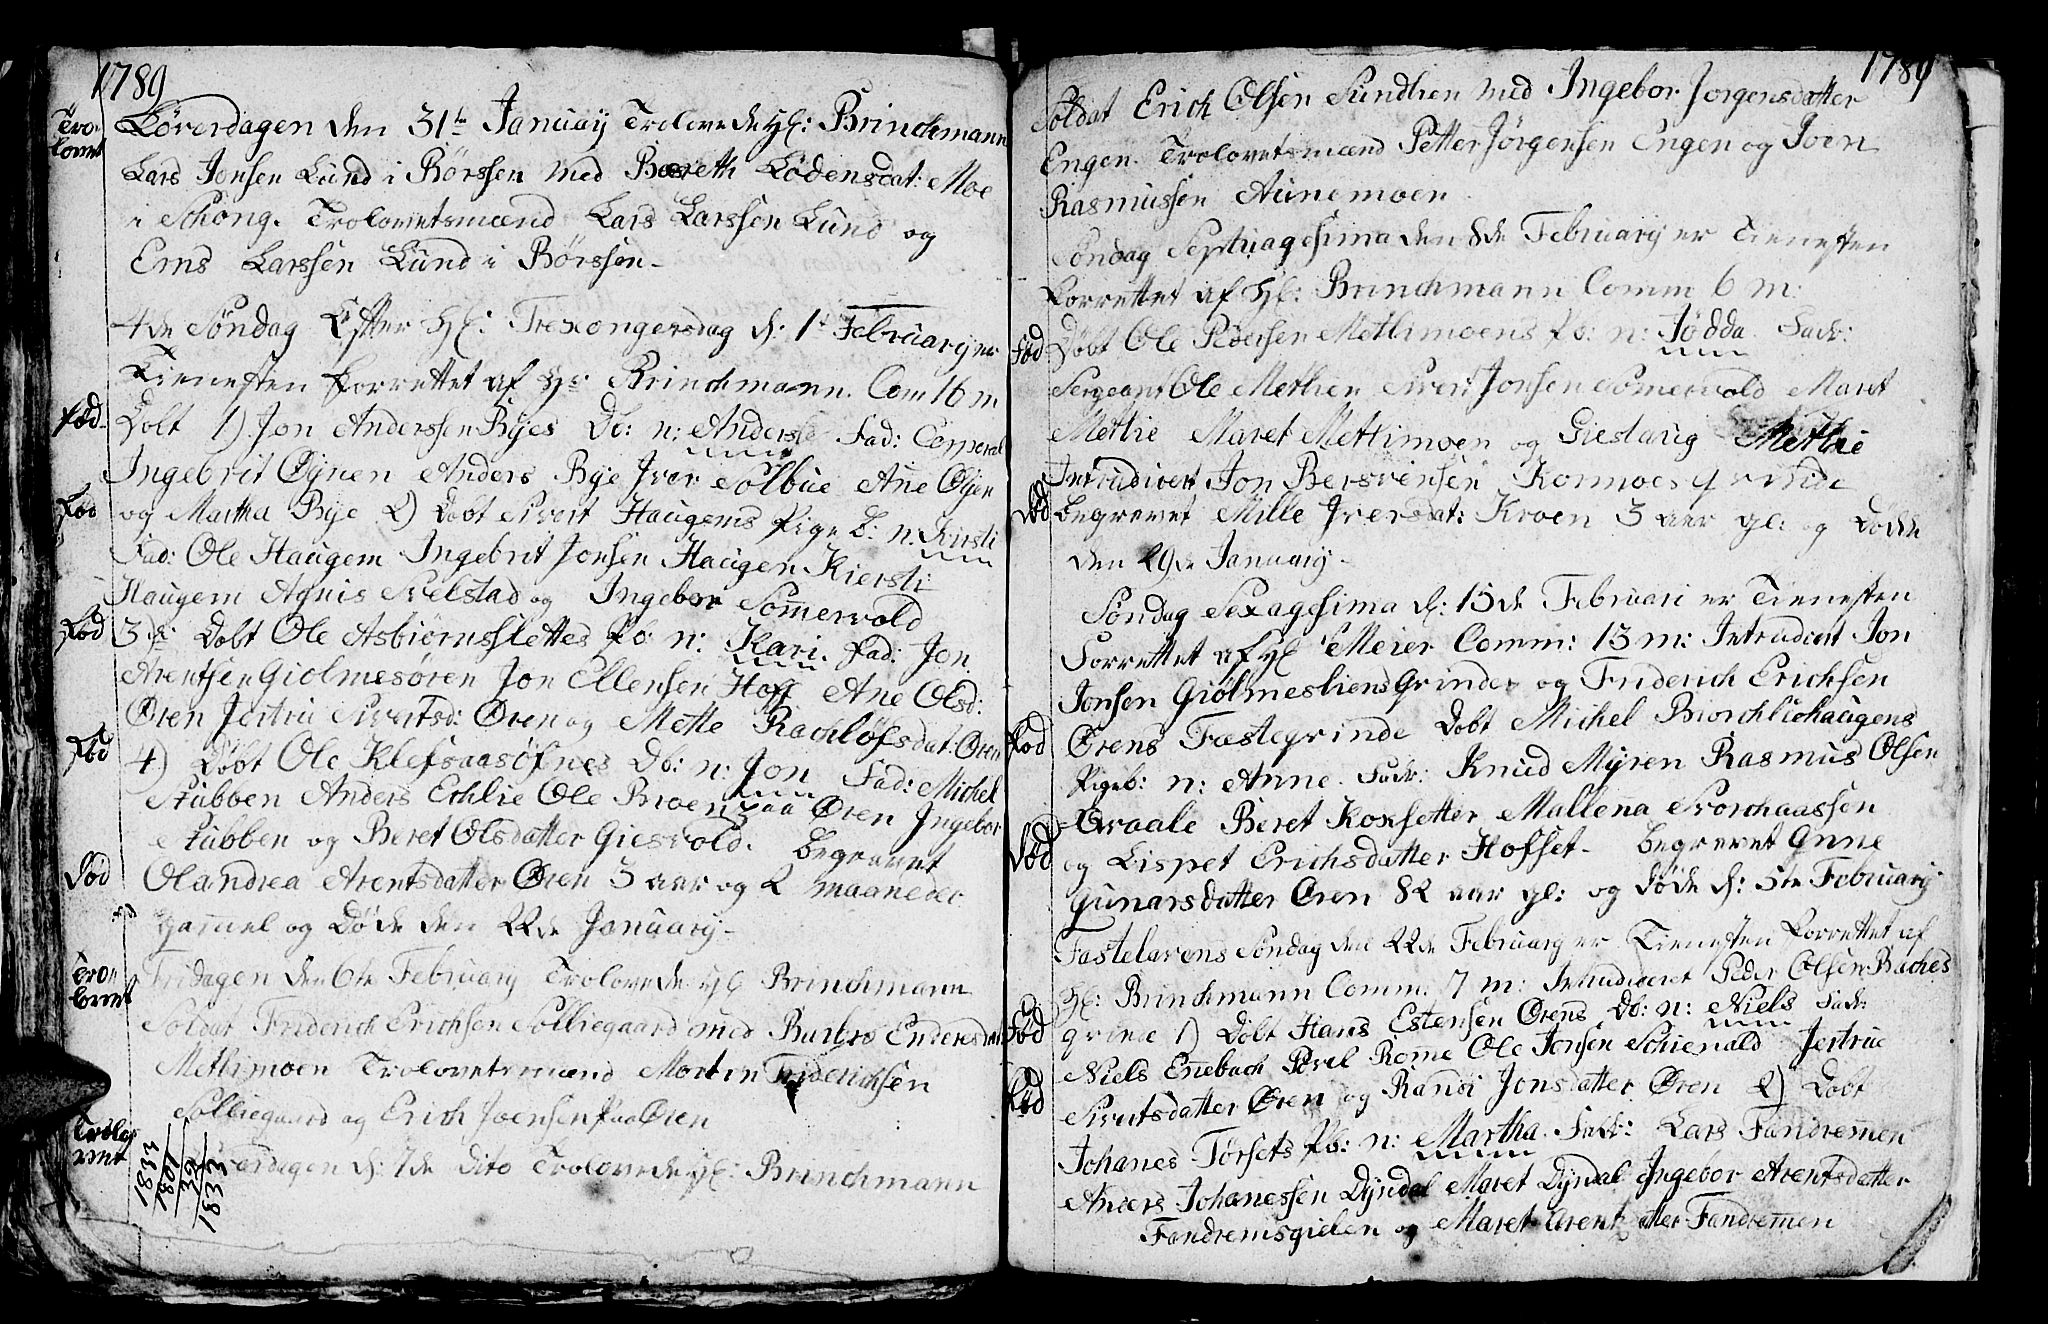 1789
Tro-
lovet
Löverdagen den 31te January Trolovede H: Brinchmann
Lars Jonsen Lund i Börssen med Bereth Lodensdat: Moe
i Schong. Trolovetsmænd Lars Larssen Lund og
Erns Larssen Lund i Börssen-
4de Söndag Efter H: Trexongersdag d: 1te February er
Tienesten forrettet af Hr Brinchmann. Com 16 m
Föd-
Dobt 1) Jon Anderssen Byes Db: n: Anders Fad: Corporal
Ingebrit Öynen Anders Bye Iver Solbue Ane Öyen
Föd
og Martha Bye 2) Dobt Sivert Haugems Pige b: n: Kirsti
Fad: Ole Haugem Ingebrit Jonsen Haugen Kiersti
Haugem Agnis Svelstad og Ingebor Somervold
Föd
3) Dobt Ole Asbiörnsslettes Pb: n: Kari. Fad: Jon
Arentsen Giolmesören Jon Ellensen Hoff Ane Olsd:
Ören Jertru Sivertsd: Ören og Mette Rachlöfsdat: Ören
Föd
4) Döbt Ole Klefsaasöfnes Db: n: Jon Fad: Michel
Stubben Anders Echlie Ole Broen paa Ören Ingebor
Stubben og Beret Olsdatter Giesvold. Begrevet
Död
Olandrea Arentsdatter Ören 3 aar og 2 maaneder
gammel og Döde den 22de January-
Tro-
lovet
Fridagen den 6te February Trolovede H Brinchmann
Soldat Friderich Erichsen Solliegaard med Barbro Endersdat
Methimoen Trolovetsmænd Morten Friderichsen
Solliegaard og Erich Joensen paa Ören
Trolo-
vet
Lövardagen d: 7de dito Trolovede H: Brinchmann
1789
Soldat Erich Olsen Sundlien med Ingebor Jorgensdatter
Engen. Trolovetsmænd Petter Jörgensen Engen og Joen
Rasmussen Aunemoen
Söndag Septuagesima den 8de February er Tienesten
forrettet af H: Brinchmann Comm 6 m:
Föd
Döbt Ole Pedersen Methimoens Pb: n: Jödda Fadr:
Sergeant Ole Methen Sivert Jonsen Somervold Maret
Methie Maret Metlimoen og Gieslaug Methie
Intrudicert Jon Bersvensen Komoes qvinde
Död
Begrevet Mille Iversdat: Kroen 3 aar gl: og Dodde
den 29de January-
Söndag Sexagesima d: 15de Februari er Tienesten
Forrettet af H Meier Comm: 13 m: Intrudicert Jon
Jonsen Giölmesliens Qvinde og Friderich Erichsen
Föd
Örens Fæsteqvinde Dobt Michel Biorchliehaugens
Pigeb: n: Anne. Fadr: Knud Myren Rasmus Olsen
Qvaale Beret Koxsetter Mallena Storchaassen
Död
og Lispet Erichsdatter Hofset- Begrevet Anne
Gunarsdatter Ören 82 aar gl: og döde d: 5te February
Fastelavens Söndag den 22de February er Tienesten forrettet af
H: Brinchmann Comm: 7 m: Intrudiceret Peder Olsen Baches
Föd
qvinde 1) Döbt Hans Estensen Örens Db: n: Niels Fadr:
Niels Enebach Povel Rome Ole Jonsen Schienald Jertrue
Föd
Sivertsdatter Ören og Randi Jonsdatter Ören 2) Dobt
Johanes Törsets Pb: n: Martha. Fadr: Lars Fandremen
Anders Johanessen Dyndal Maret Dyndal Ingebor Arentsdatter
Fandremsgielen og Maret Arentsdatter Fandremen